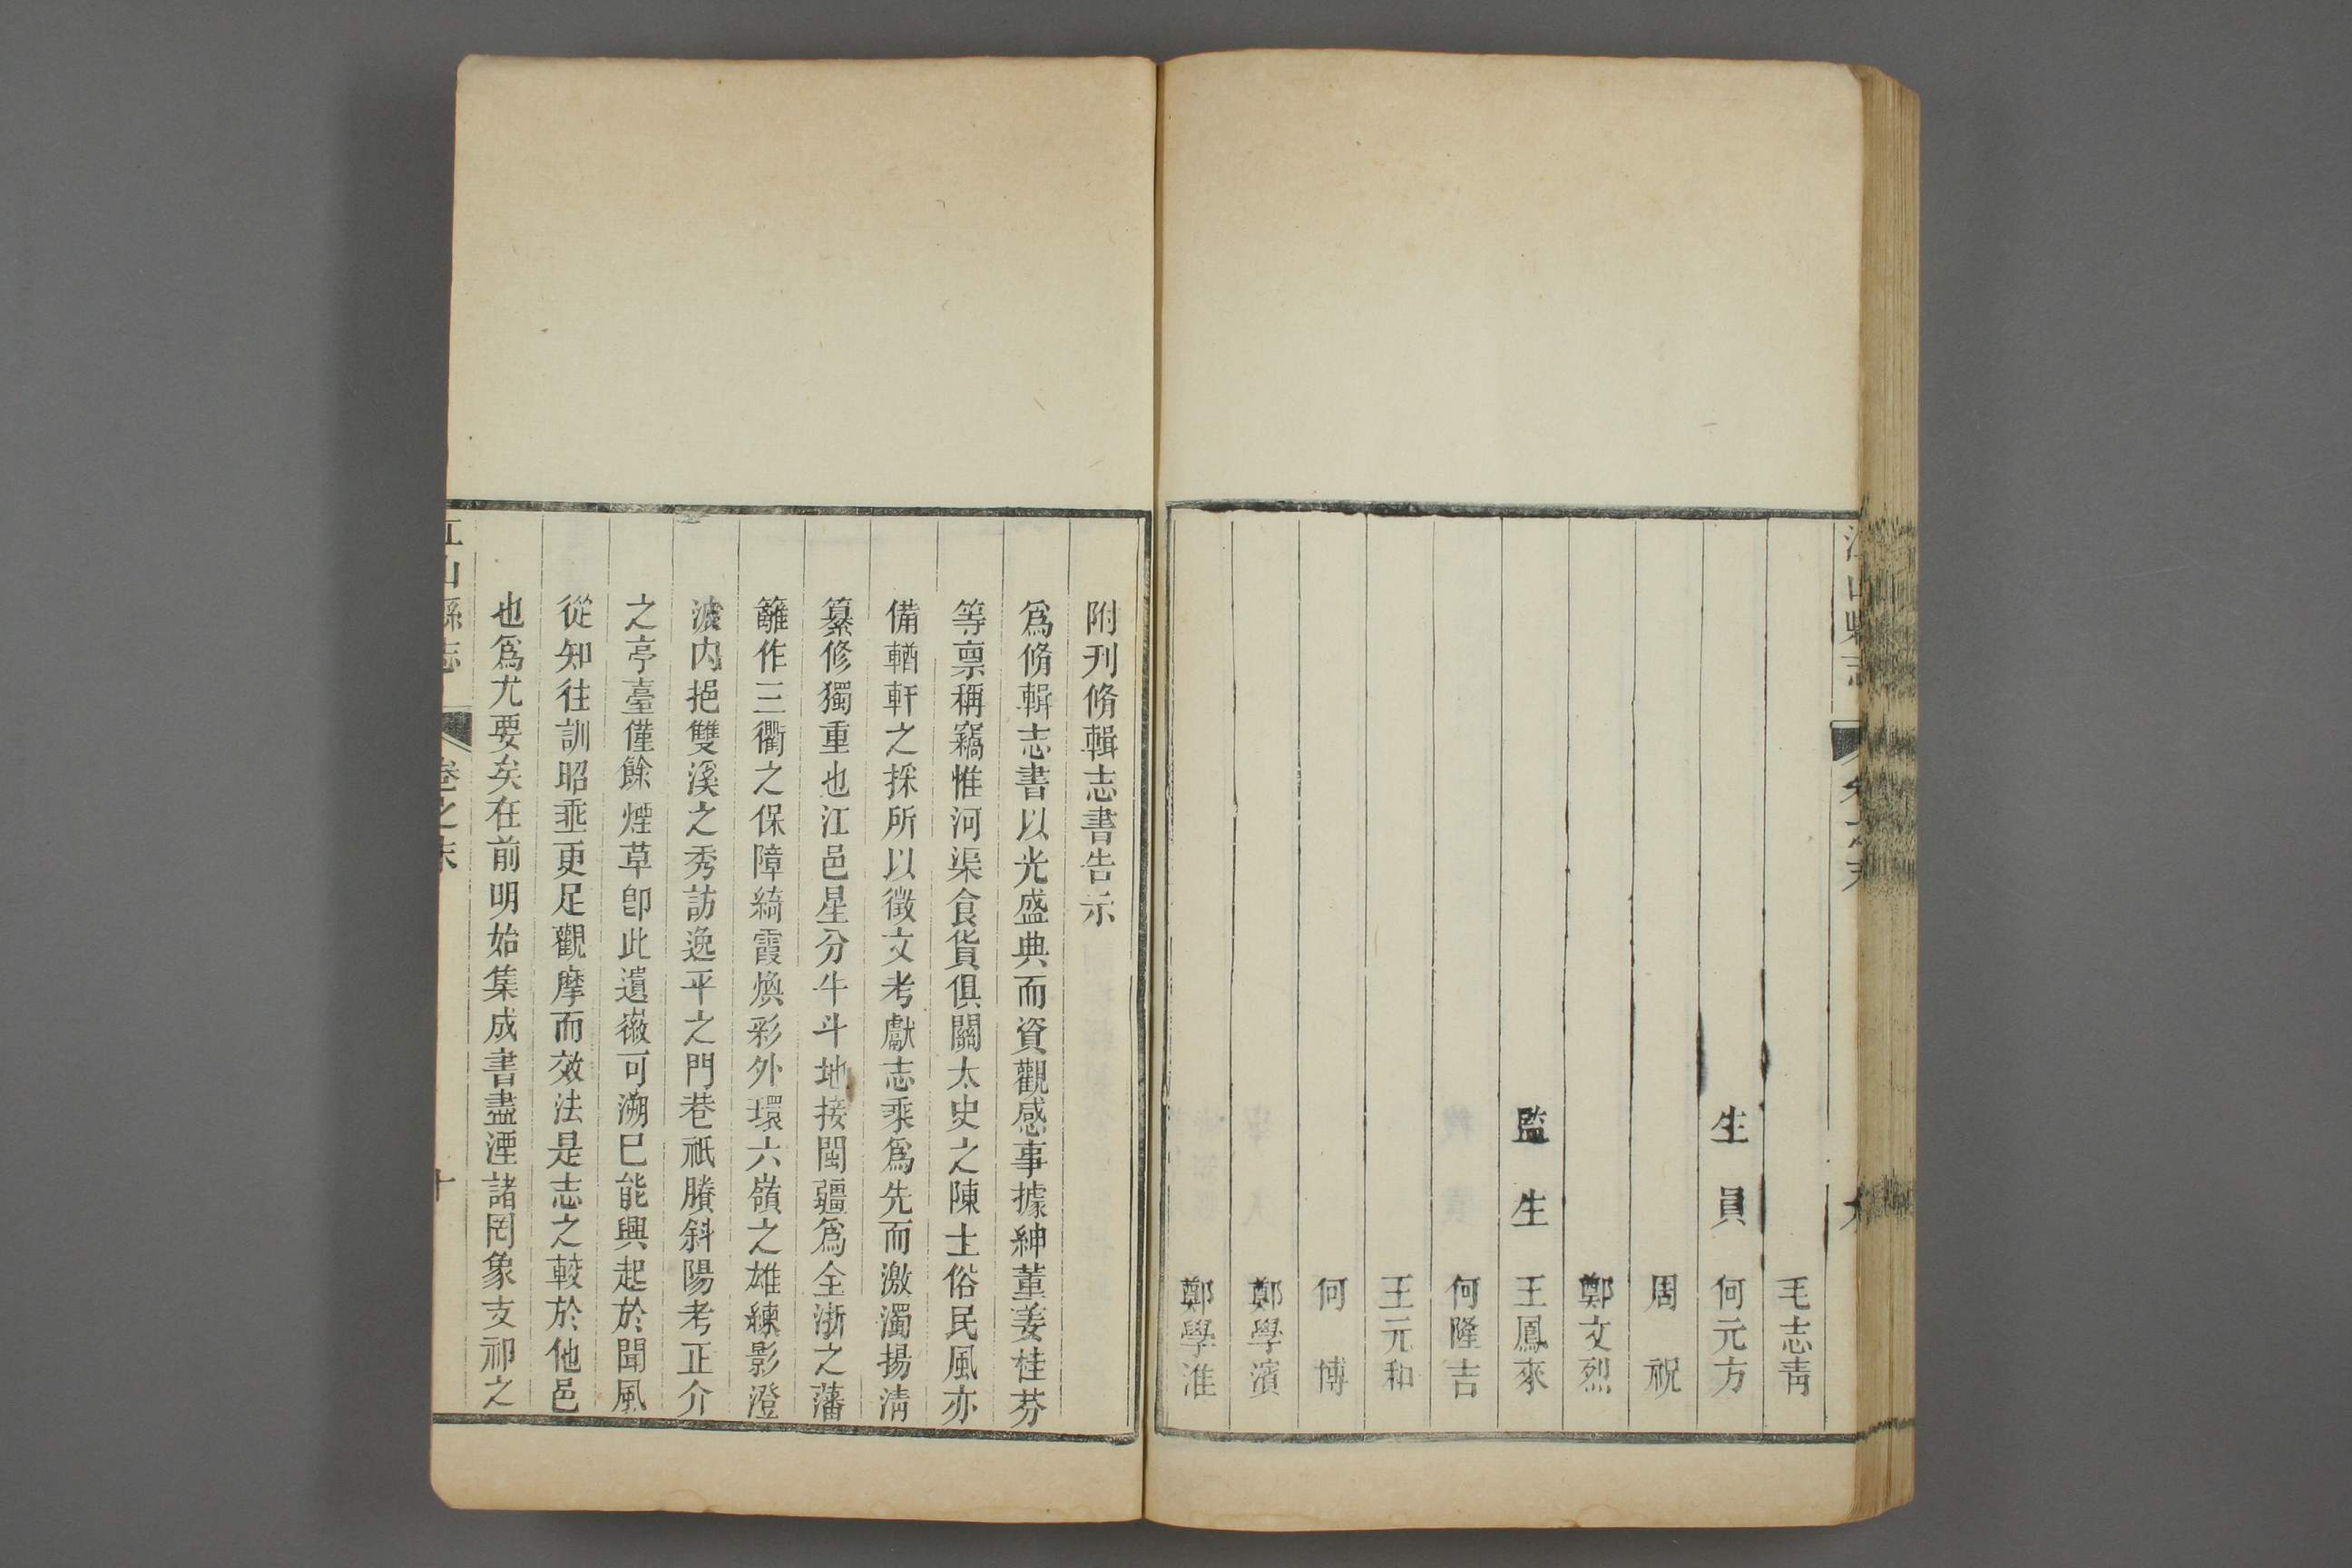 毛志靑
生員 何元方
周 祝
鄭文烈
監生 王鳳來
何隆吉
王元和
何 博
鄭學濱
鄭學淮
附刊脩輯志書告示
爲脩輯志書以光盛典而資觀感事據紳董姜桂芬
等禀稱竊惟河渠食貨俱關太史之陳土俗民風亦
備輶軒之採所以徵文考獻志乘爲先而激濁揚淸
纂修獨重也江邑星分牛斗地接閩疆爲全浙之藩
籬作三衢之保障綺霞煥彩外環六嶺之雄練影澄
波內挹雙溪之秀訪逸平之門巷祇賸斜陽考正介
之亭臺僅餘煙草卽此遺徽可溯巳能興起於聞風
從知往訓昭垂更足觀摩而效法是志之較於他邑
也爲尤要矣在前明始集成書盡湮諸罔象支祁之
江山縣志 卷之末 十